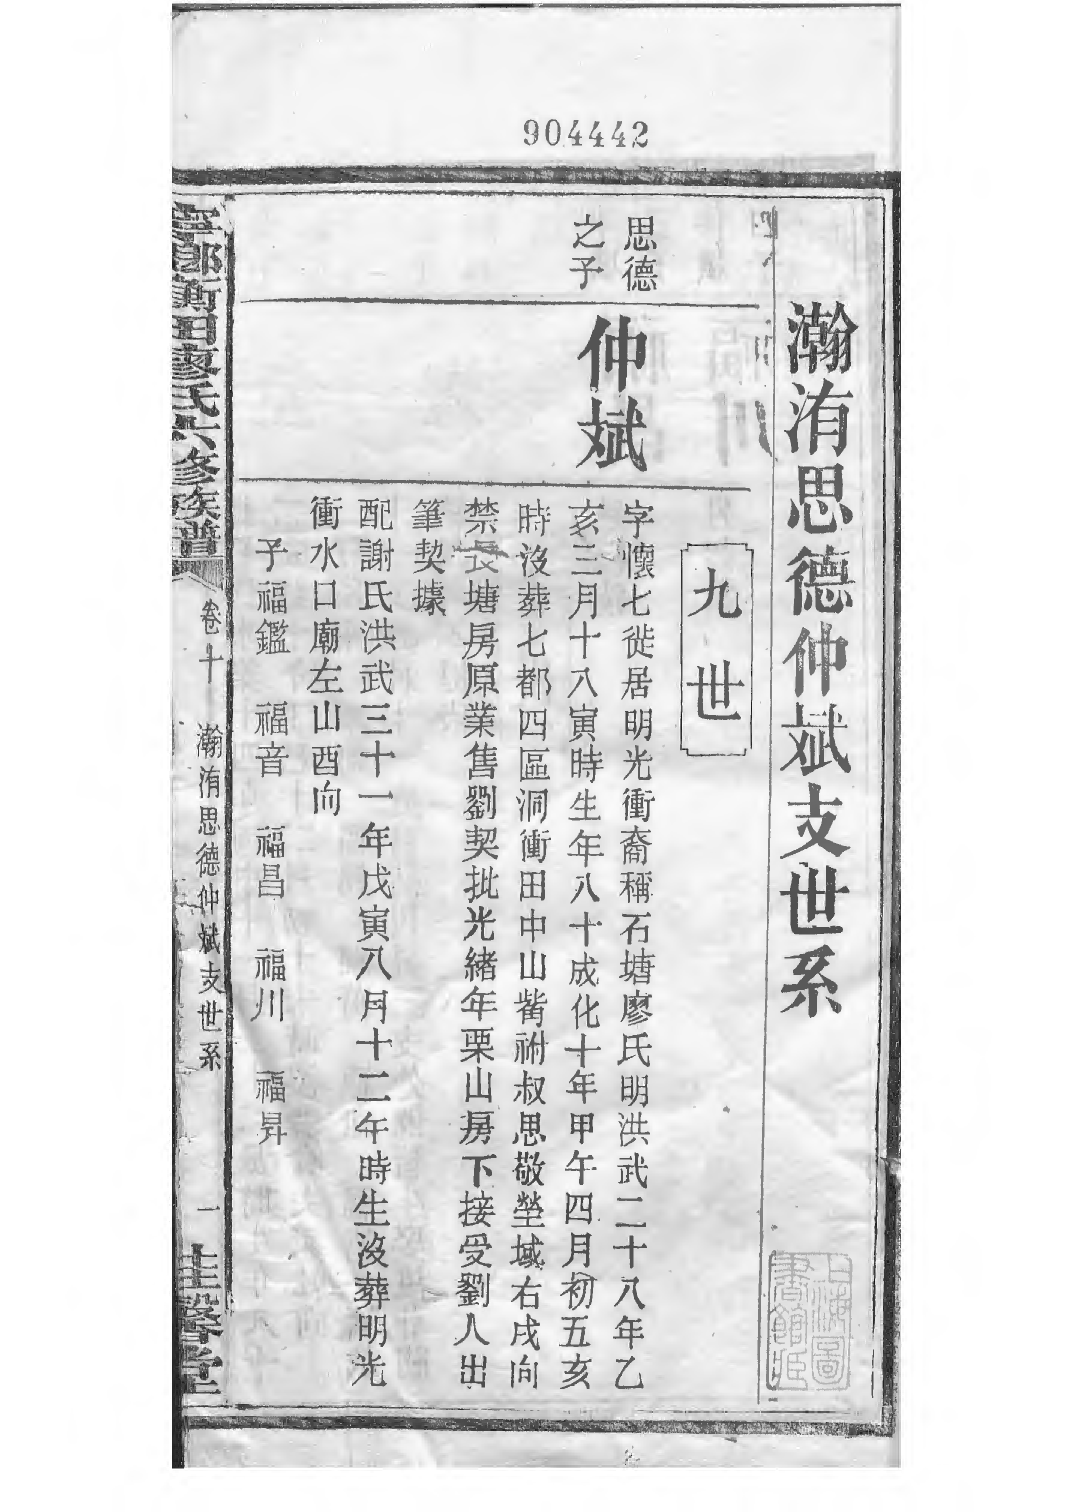 904442
瀚洧思德仲斌支世系
九世
思德
之子
仲斌
字懷七徙居明光衝裔稱石塘廖氏明洪武二十八年乙
亥三月十八寅時生年八十成化十年甲午四月初五亥
時沒葬七都四區洞衝田中山觜祔叔思敬塋域右戌向
禁長塘房原業售劉契批光緒年栗山房下接受劉人出
筆契據
配謝氏洪武三十一年戊寅八月十二午時生沒葬明光
衝水口廟左山酉向
子福鑑 福音 福昌 福川 福昇
寧鄉衡田廖氏六修族譜
卷十
瀚洧思德仲斌支世系
一
桂馨堂
上海圖
書館藏